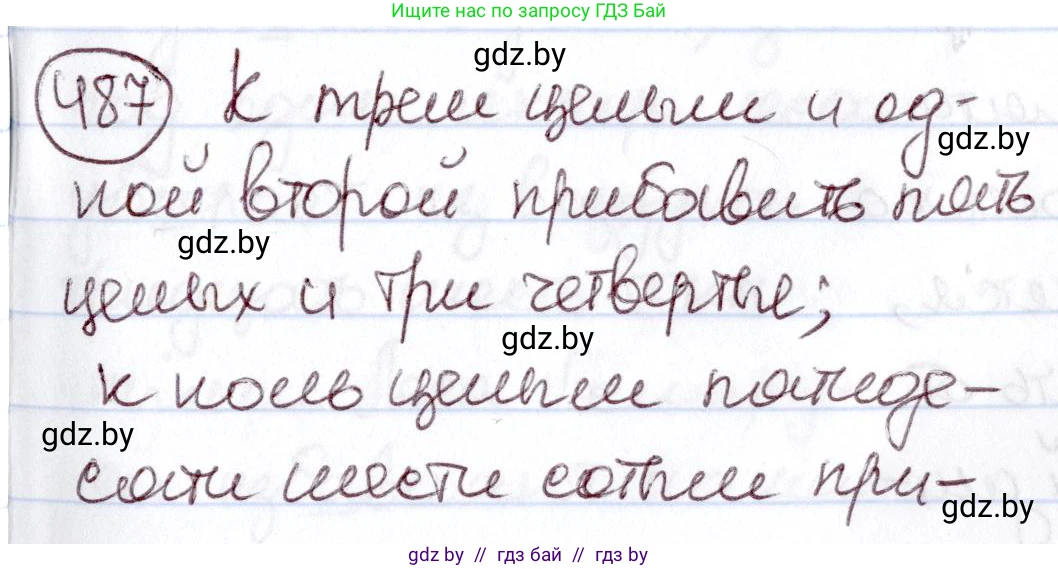 Ищите нас по запросу ГДЗ Бай
gdz.by
487 К трем целым и од-
gdz.by
ной второй прибавить пять
gdz.by
целых и три четвертые;
gdz.by
к ноль целым пятиде-
gdz.by
сяти шести сотым при-
gdz.by
gdz.by // гдз бай // гдз by